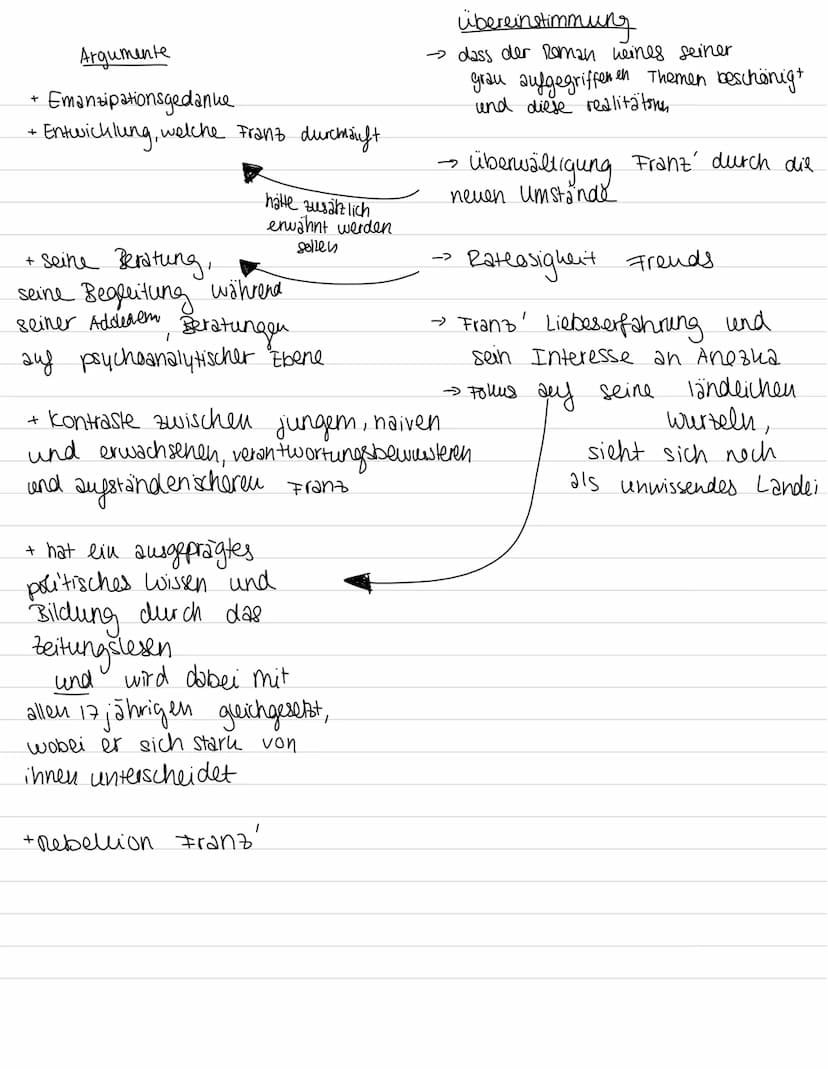 Argumente
+ Emanzipationsgedanke
+ Entwicklung, welche Franz durchläuft
+ seine Beratung,
seine Begleitung während
seiner, Beratungen
auf psychoanalytischer Ebene
+ Kontraste zwischen jungem, naiven
und erwachsenen, verantwortungsbewussteren
und aufständenischeren Franz
+ hat ein ausgeprägtes
politisches Wissen und
Bildung durch das
Zeitungslesen
und wird dabei mit
allen 17 jährigen gleichgesetzt,
wobei er sich stark von
ihnen unterscheidet
+ Rebellion Franz'
hätte zusätzlich
erwähnt werden
sollen
Übereinstimmung
→ dass der Roman keines seiner
grau aufgegriffenen Themen beschönigt
und diese
→ Überwältigung Franz' durch die
neuen Umstände
→ Ratlosigkeit Freuds
→ Franz' Liebeserfahrung und
sein Interesse an Anezka
→ Fokus auf seine ländlichen
Wurzeln,
sieht sich noch
als unwissendes Landei